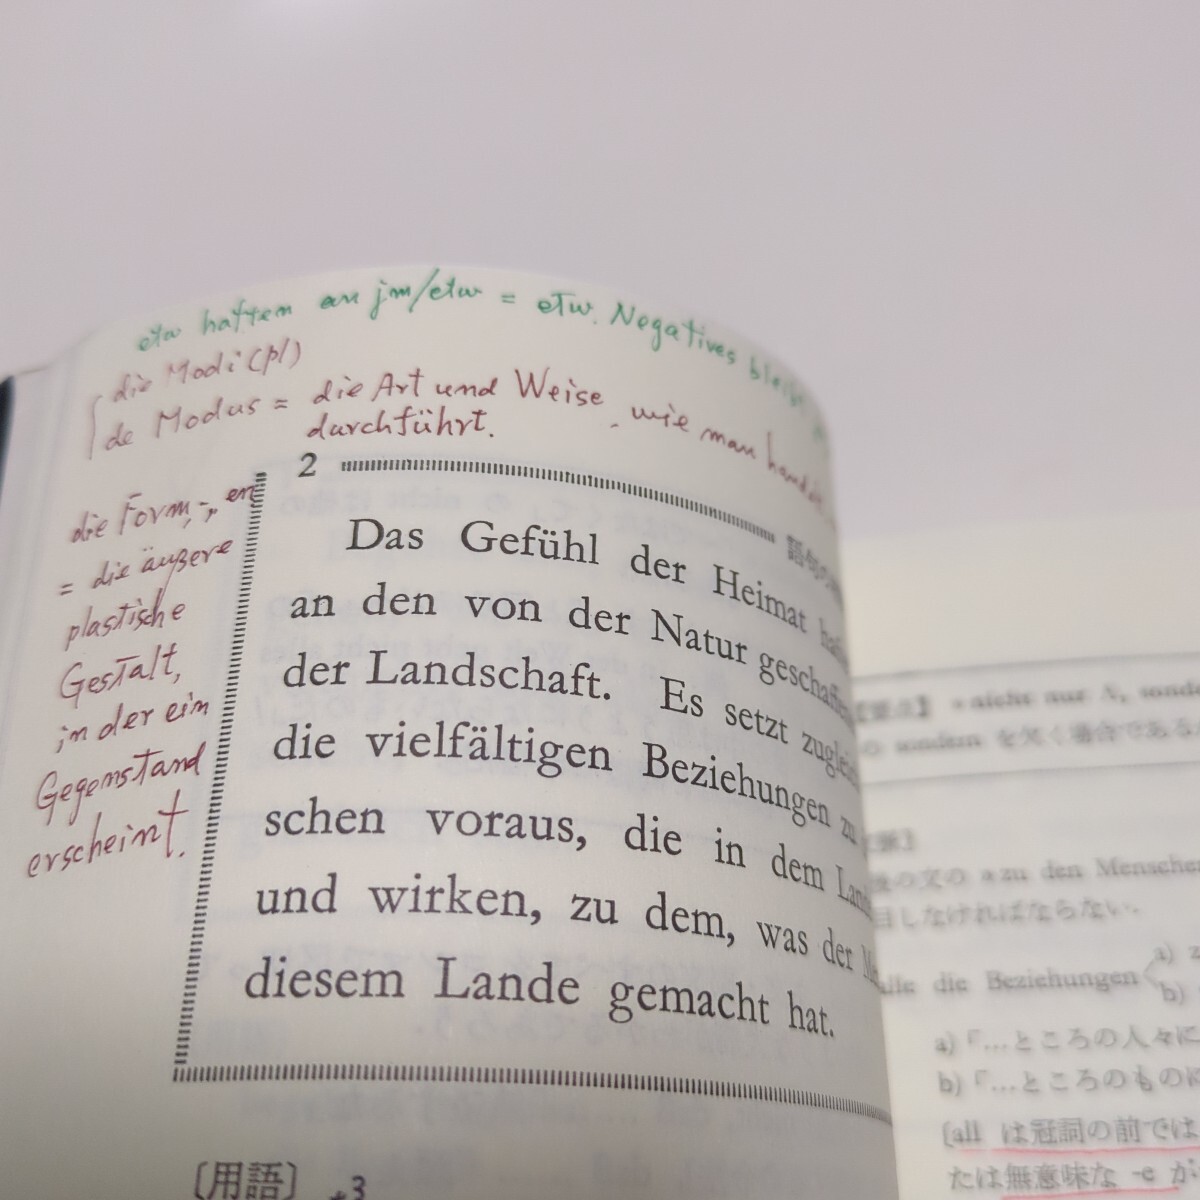 etw haften an jm/etw = etw. Negatives bleibt
die Modi (pl)
de Modus = die Art und Weise, wie man handelt
durchführt.
die Form, -, en
= die äußere
plastische
Gestalt,
in der ein
Gegenstand
erscheint.
2
Das Gefühl der Heimat
an den von der Natur
der Landschaft. Es setzt
die vielfältigen Beziehungen zu
schen voraus, die in dem
und wirken, zu dem, was der
diesem Lande gemacht hat.
〔用語〕
nicht nur A,
sondern を欠く場合である
の文の »zu den
目しなければならない.
die Beziehungen
a)
b)
a)「…ところの人々に
b)「…ところのものに
〔all は冠詞の前では
たは無意味な -e が